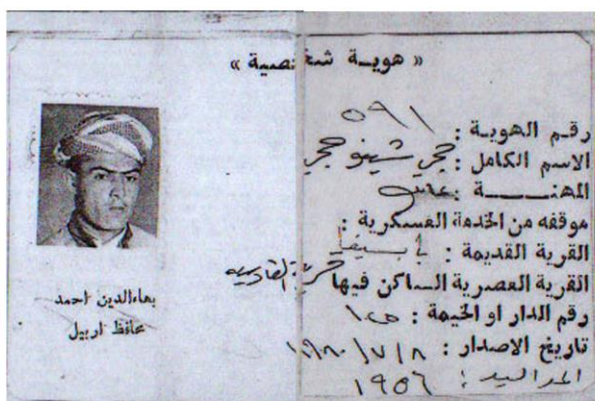 « هويـة شخصية »
رقـم الهويـة : ٥٩١
الاسم الكامل : حجي شينو حجي
المهنــــة :
موقفه من الخدمة العسكرية :
القرية القديمة :
القرية العصرية الساكن فيها القادسيه
رقم الدار او الخيمة :
تاريخ الاصدار : ١٩٨٠/٧/٨
المواليد : ١٩٥٦
بهاءالدين احمد
محافظ اربيل